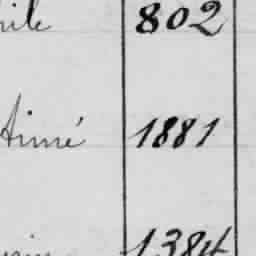 802
Aimé 1881
1384